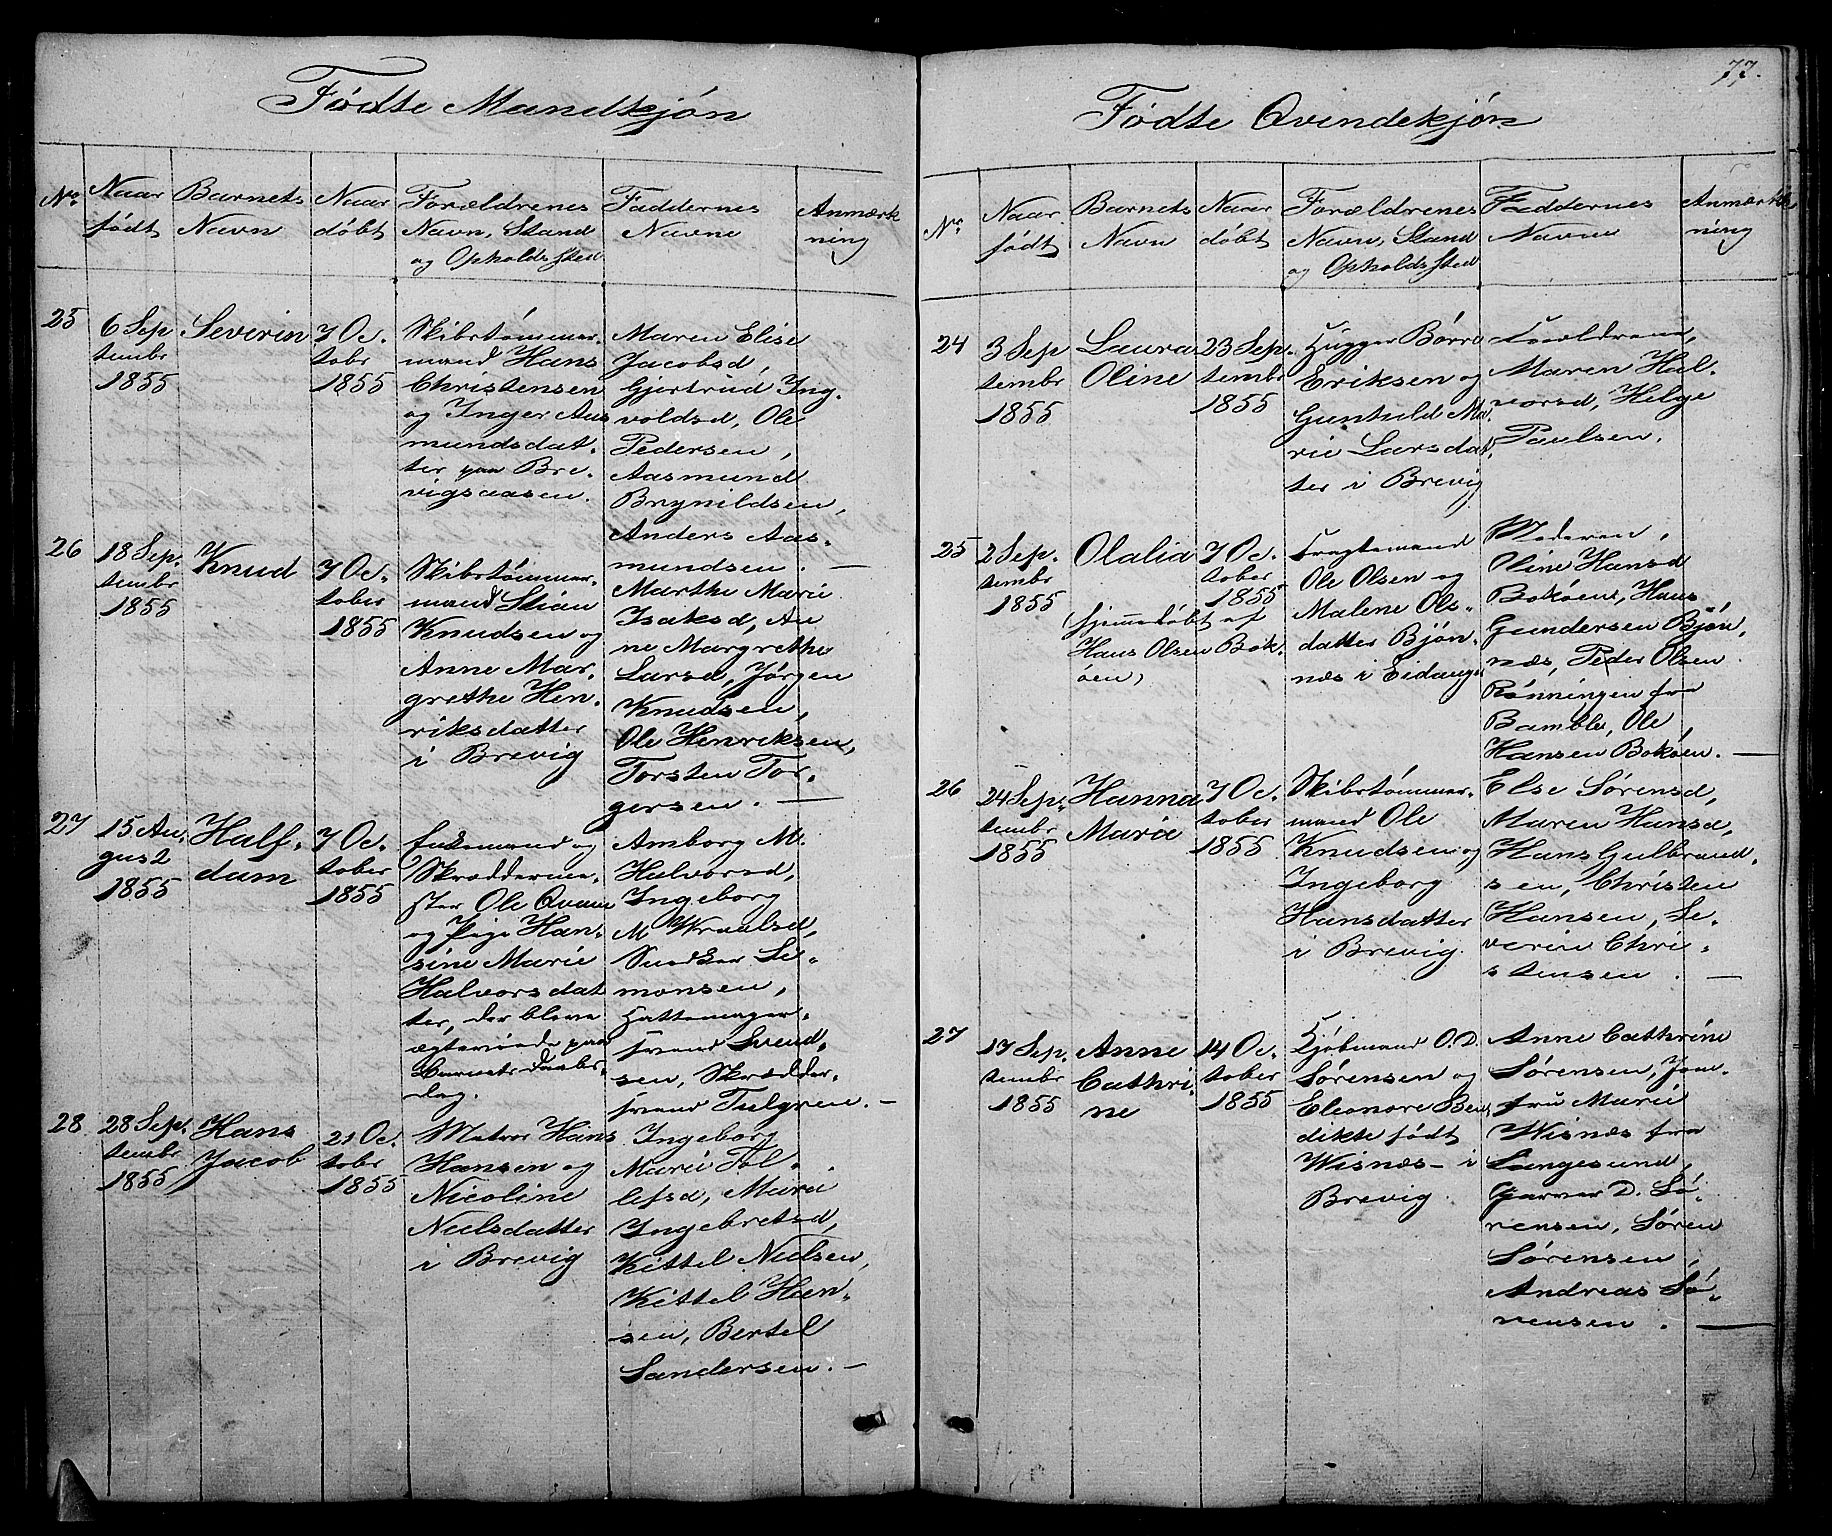 Fødte Mandkjøn
No.
Naar født
Barnets Navn
Naar døbt
Forældrenes Navn, Stand og Opholdssted
Faddernes Navne
Anmærkning
25
6 Sep
tembr
1855
Severin
7 Oc.
tobr
1855
Skibstømmer-
mand Hans
Christensen
og Inger Aas
mundsdat-
ter paa Bre
vigsaasen.
Maren Elise
Jacobsd,
Gjertrud Ing-
voldsd, Ole
Pedersen,
Aasmund
Brynildsen,
Anders Aas-
mundsen. —
26
18 Sep.
tembr
1855
Knud
7 Oc.
tober
1855
Skibstømmer-
mand Stian
Knudsen og
Anne Mar-
grethe Hen-
riksdatter
i Brevig
Marthe Marie
Isaksd, An
ne Margrethe
Larsd, Jørgen
Knudsen,
Ole Henriksen,
Torsten Tor-
gersen. —
27
15 Au-
gust
1855
Half-
dam
7 Oc.
tober
1855
Enkemand og
Skræddermes-
ster Ole Qvam
og Pige Han-
sine Marie
Halvorsdat
ter, der bleve
ægteviede paa
Barnets Daabs-
dag.
Amborg M.
Halvorsd,
Ingeborg
M
Simonsen,
Hattemager-
svend Svend-
sen, Skrædder-
svend Tulgren. —
28
28 Sep.
tembr
1855
Hans
Jacob
21 Oc.
tobr
1855
Matros Hans
Hansen og
Nicoline
Nielsdatter
i Brevig
Ingeborg
Marie Tol-
lefsd, Maria
Ingebretsd,
Kittel Nielsen,
Kittel Han-
sen, Bertel
Sandersen. —
77.
Fødte Qvindekjøn
No.
Naar født
Barnets Navn
Naar døbt
Forældrenes Navn, Stand og Opholdssted
Faddernes Navne
Anmærkning
24
3 Sep
tembr
1855
Laura
Oline
23 Sep.
tembr
1855
Hugger Børre
Eriksen og
Gunhild Ma
rie Larsdat-
ter i Brevig
Forældrene,
Maren Hal-
vorsd, Helge
Paulsen.
25
2 Sep.
tembr
1855
Olalia
(hjemmedøbt af
Hans Olsen Bok-
øen)
7 Oc.
tober
1855
Fragtemand
Ole Olsen og
Malene Ols-
datter Bjøn-
næs i Eidanger
Moderen,
Oline Hansd
Bokøen, Hans
Gundersen Bjøn-
næs, Peder Olsen
Rønningen fra
Bamble, Ole
Hansen Bokøen. —
26
24 Sep.
tembr
1855
Hanna
Marie
7 Oc.
tober
1855
Skibstømmer-
mand Ole
Knudsen og
Ingeborg
Hansdatter
i Brevig
Else Sørensd,
Maren Hansd,
Hans Gulbrand-
sen, Christen
Hansen, Se-
verin Chri-
stensen. —
27
17 Sep.
tembr
1855
Anne
Cathri-
ne
14 Oc.
tober
1855
Kjøbmand O. D.
Sørensen og
Eleonore Ben
dikte født
Wisnæs - i
Brevig.
Anne Cathrine
Sørensen, Jom-
fru Marie
Wisnæs fra
Langesund,
Garver D. Sø-
rensen, Søren
Sørensen,
Andreas Sø-
rensen. —